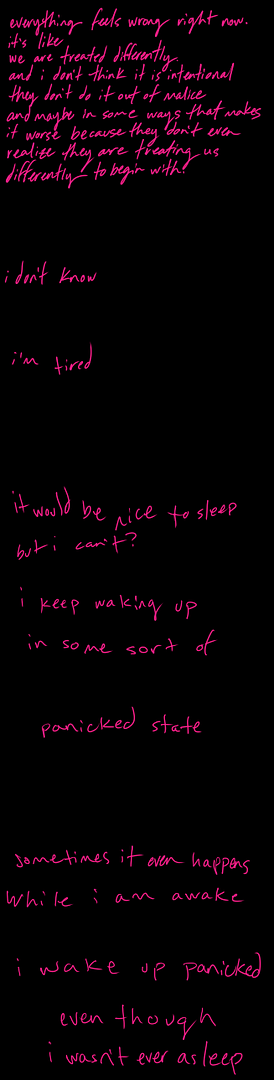 everything feels wrong right now.
it's like
we are treated differently.
and i don't think it is intentional
they don't do it out of malice
and maybe in some ways that makes
it worse because they don't even
realize they are treating us
differently to begin with.
i don't know
i'm tired
it would be nice to sleep
but i can't?
i keep waking up
in some sort of
panicked state
sometimes it even happens
while i am awake
i wake up panicked
even though
i wasn't ever asleep